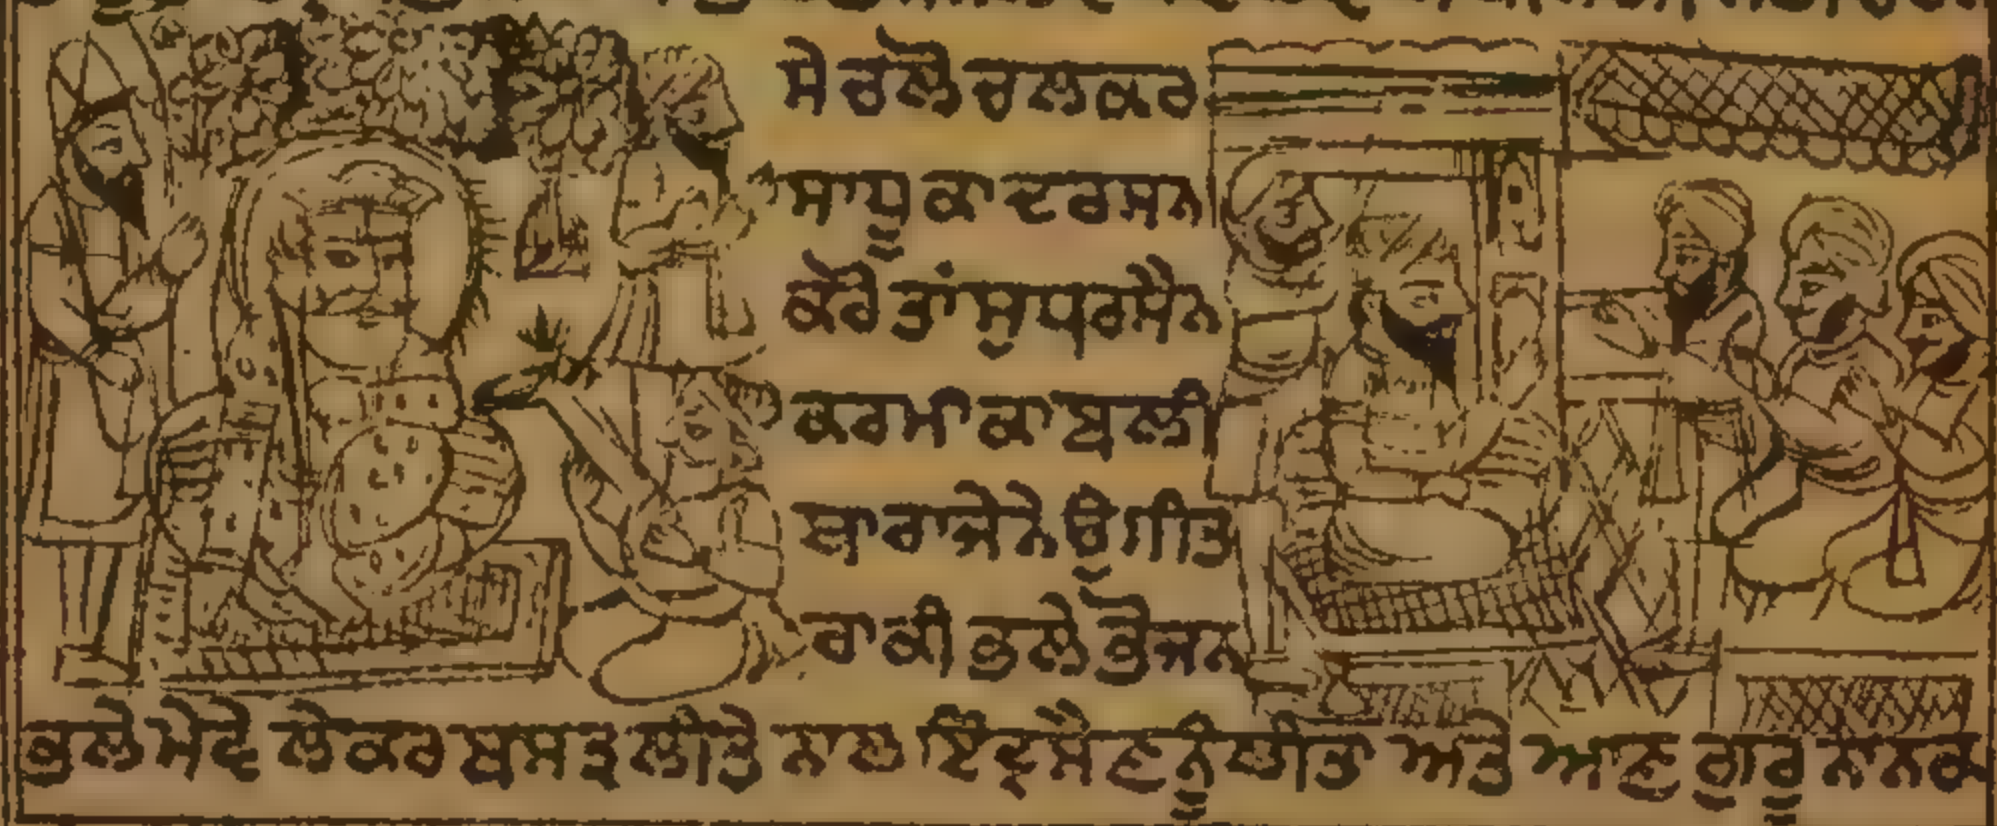 ਸੇ ਚਲੋ ਚਲਕਰ
ਸਾਧੂ ਕਾ ਦਰਸਨ
ਕਰੋ ਤਾਂ ਸੁਧਰਸੈਨ
ਕਰਮੀ ਕਾਬਲੀ
ਰਾਜੇ ਨੇ ਉਗੀਤ
ਰਾਕੀ ਭਲੇ ਭੋਜਨ
ਭਲੇ ਮੇਵੇ ਲੇਕਰ ਬ੍ਰਸਤ੍ਰ ਲੀਤੇ ਨਾਲ ਇੰਦ੍ਰਸੈਣ ਨੂੰ ਲੀਤਾ ਅਤੇ ਆਣ ਗੁਰੂ ਨਾਨਕ